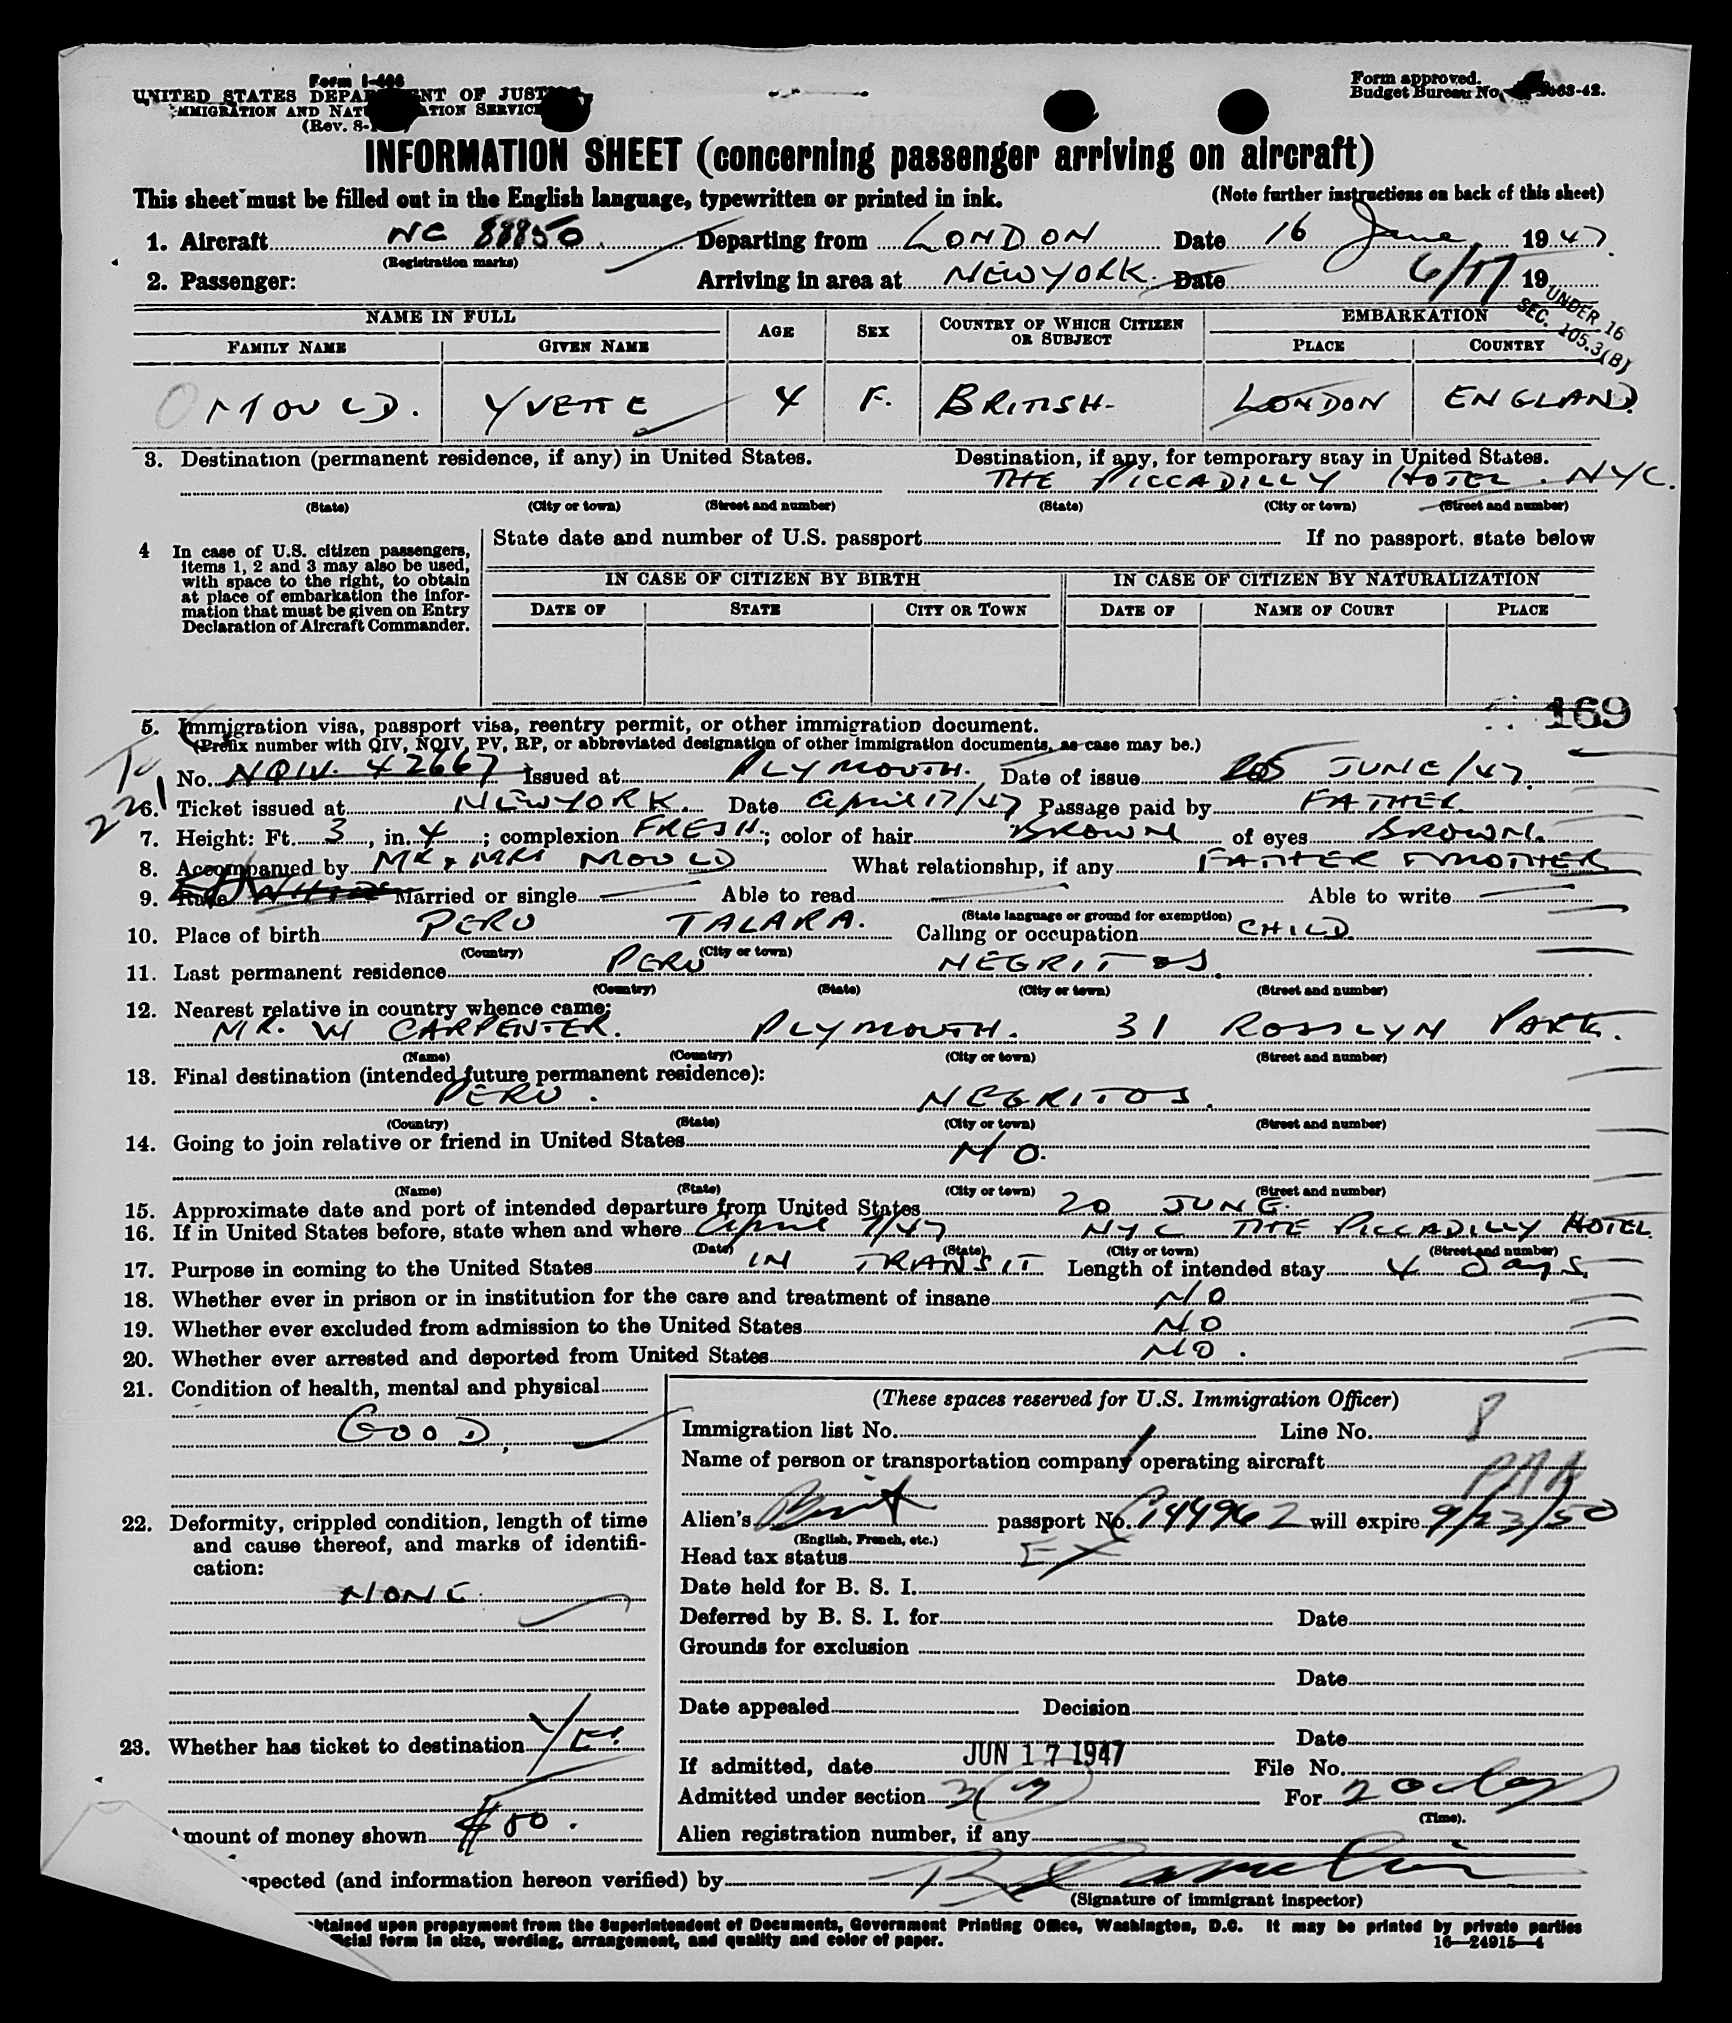 Form I-466
UNITED STATES DEPARTMENT OF JUSTICE
IMMIGRATION AND NATURALIZATION SERVICE
(Rev. 8-
Form approved.
Budget Bureau No. 63-42.
INFORMATION SHEET (concerning passenger arriving on aircraft)
This sheet must be filled out in the English language, typewritten or printed in ink. (Note further instructions on back of this sheet)
1. Aircraft NC 88850 Departing from LONDON Date 16 June, 1947.
(Registration marks)
2. Passenger: Arriving in area at NEW YORK. Date 6/17 19
UNDER 16
SEC. 105.3(B)
NAME IN FULL AGE SEX COUNTRY OF WHICH CITIZEN OR SUBJECT EMBARKATION
FAMILY NAME GIVEN NAME PLACE COUNTRY
MOULD. YVETTE 4 F. BRITISH- LONDON ENGLAND.
3. Destination (permanent residence, if any) in United States. Destination, if any, for temporary stay in United States.
THE PICCADILLY HOTEL. NYC.
(State) (City or town) (Street and number) (State) (City or town) (Street and number)
4 In case of U.S. citizen passengers, items 1, 2 and 3 may also be used, with space to the right, to obtain at place of embarkation the information that must be given on Entry Declaration of Aircraft Commander.
State date and number of U.S. passport If no passport, state below
IN CASE OF CITIZEN BY BIRTH IN CASE OF CITIZEN BY NATURALIZATION
DATE OF STATE CITY OR TOWN DATE OF NAME OF COURT PLACE
169
5. Immigration visa, passport visa, reentry permit, or other immigration document.
(Prefix number with QIV, NQIV, PV, RP, or abbreviated designation of other immigration documents, as case may be.)
No. NQIV. 42667 Issued at PLYMOUTH. Date of issue JUNE/47.
6. Ticket issued at NEW YORK. Date April 17/47 Passage paid by FATHER
7. Height: Ft. 3, in. 4; complexion FRESH.; color of hair BROWN of eyes BROWN.
8. Accompanied by MR & MRS MOULD What relationship, if any FATHER & MOTHER
9. Race WHITE Married or single Able to read Able to write
(State language or ground for exemption)
10. Place of birth PERU TALARA. Calling or occupation CHILD
(Country) (City or town)
11. Last permanent residence PERU NEGRITOS.
(Country) (State) (City or town) (Street and number)
12. Nearest relative in country whence came:
MR. W CARPENTER. PLYMOUTH. 31 ROSSLYN PARK.
(Name) (Country) (City or town) (Street and number)
13. Final destination (intended future permanent residence):
PERU. NEGRITOS.
(Country) (State) (City or town) (Street and number)
14. Going to join relative or friend in United States
NO.
(Name) (State) (City or town) (Street and number)
15. Approximate date and port of intended departure from United States 20 JUNE.
16. If in United States before, state when and where April 7/47 NYC THE PICCADILLY HOTEL
(Date) (State) (City or town) (Street and number)
17. Purpose in coming to the United States IN TRANSIT Length of intended stay 4 days
18. Whether ever in prison or in institution for the care and treatment of insane NO
19. Whether ever excluded from admission to the United States NO
20. Whether ever arrested and deported from United States NO.
21. Condition of health, mental and physical
GOOD,
22. Deformity, crippled condition, length of time and cause thereof, and marks of identification:
NONE
23. Whether has ticket to destination YES.
Amount of money shown $50.
(These spaces reserved for U.S. Immigration Officer)
Immigration list No. 1 Line No. 8
Name of person or transportation company operating aircraft PAA
Alien's Brit passport No. C144962 will expire 9/23/50
(English, French, etc.)
Head tax status EX
Date held for B. S. I.
Deferred by B. S. I. for Date
Grounds for exclusion
Date
Date appealed Decision
Date
If admitted, date JUN 17 1947 File No.
Admitted under section 3( ) For 20 days
(Time).
Alien registration number, if any
spected (and information hereon verified) by
(Signature of immigrant inspector)
btained upon prepayment from the Superintendent of Documents, Government Printing Office, Washington, D.C. It may be printed by private parties
cial form in size, wording, arrangement, and quality and color of paper.
16—24915-4